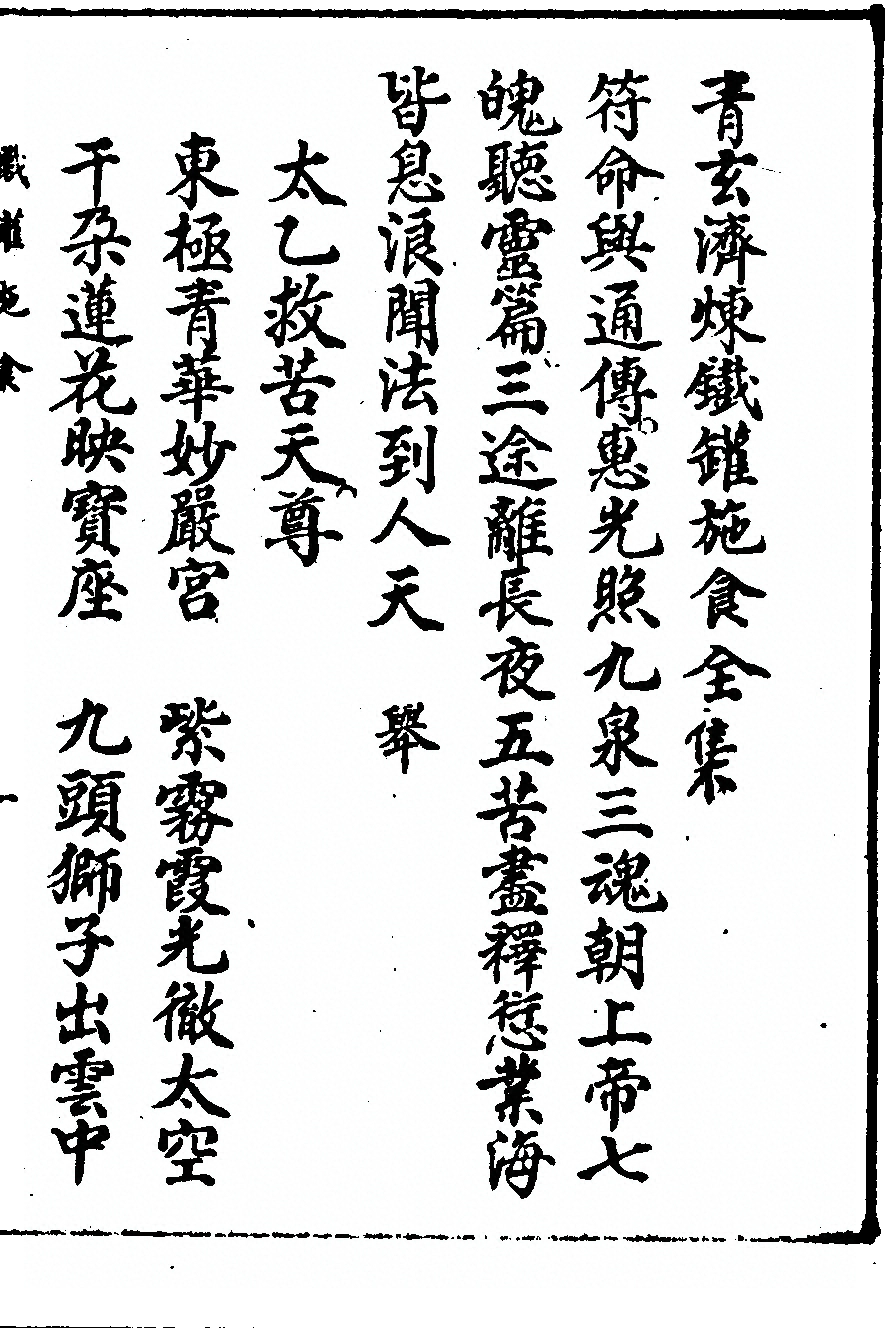 青玄濟煉鐵鑵施食全集
符命與通傳惠光照九泉三魂朝上帝七
魄聽靈篇三途離長夜五苦盡釋愆業海
皆息浪聞法到人天 舉
太乙救苦天尊
東極青華妙嚴宮 紫霧霞光徹太空
千朶蓮花映寶座 九頭獅子出雲中
一